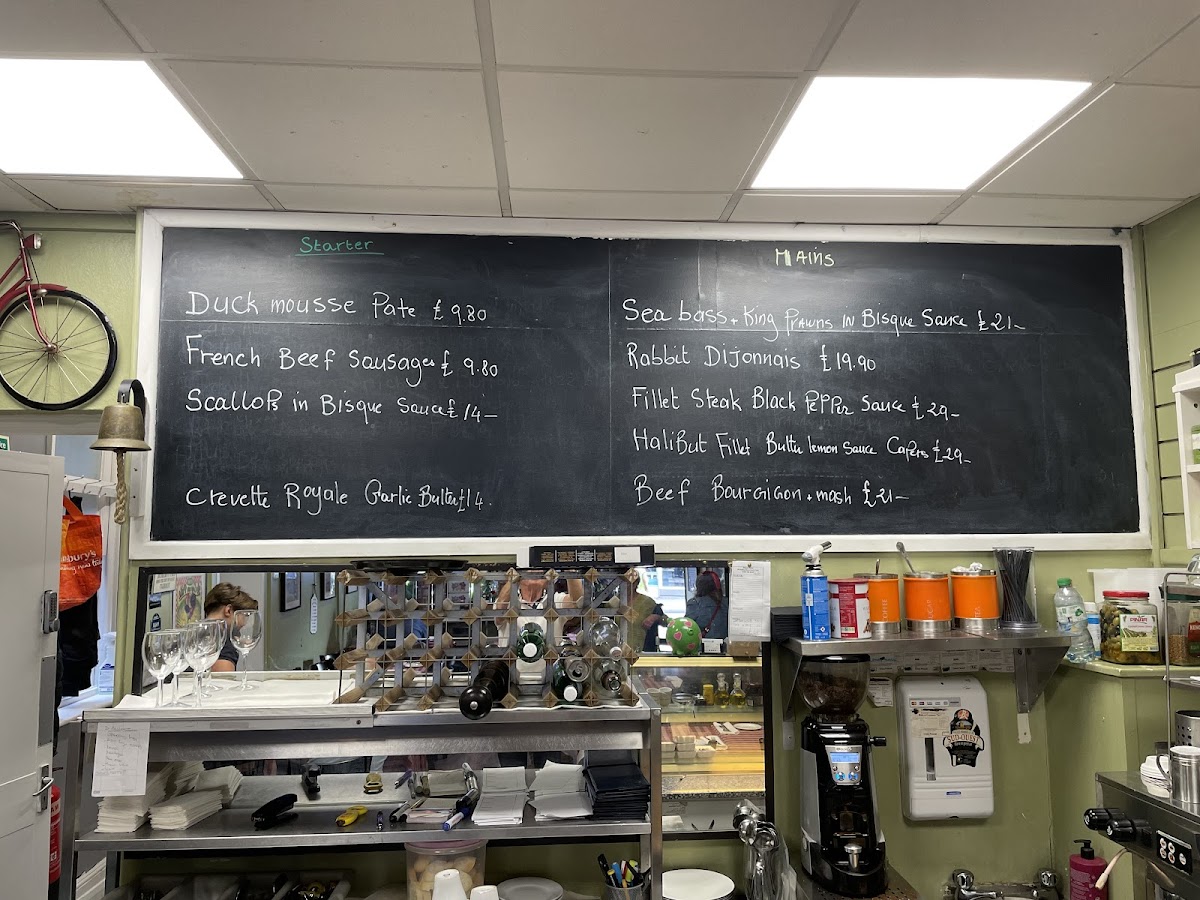 Starter
Duck mousse Pate £ 9.80
French Beef Sausages £ 9.80
Scallops in Bisque Sauce £ 14-
Crevette Royale Garlic Butter £14.
MAins
Sea bass + King Prawns IN Bisque Sauce £21-
Rabbit Dijonnais £19.90
Fillet Steak Black PEPPer Sauce £29-
HaliBut Fillet Butter lemon Sauce Capers £29-
Beef Bourgigon + mash £21-
SUD-OUEST